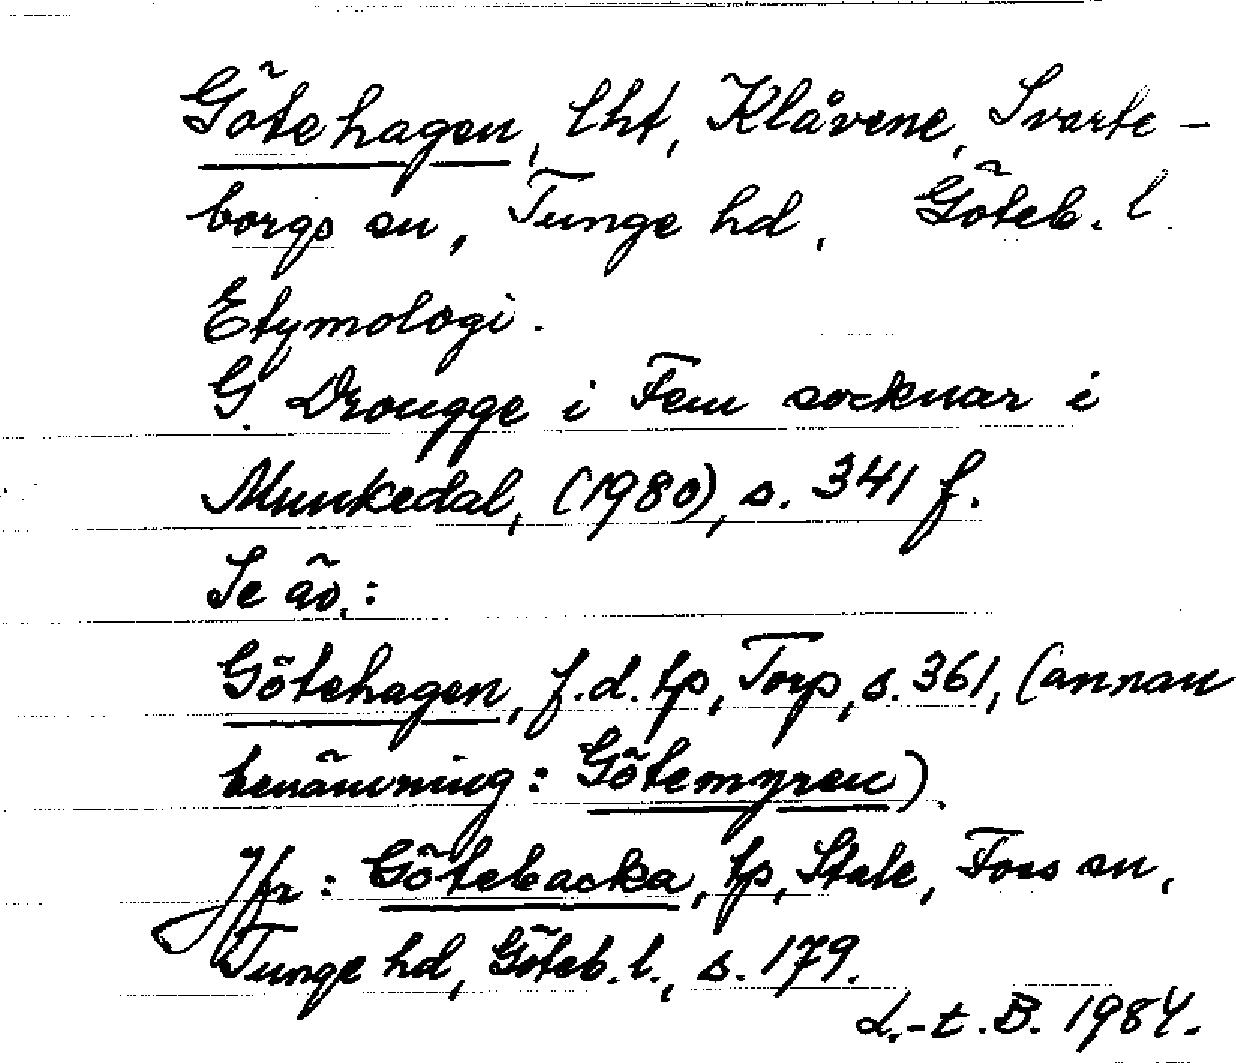 Götehagen, lht, Klåvene, Svarte-
borgs sn, Tunge hd, Göteb. l.
Etymologi.
G. Drougge i Fem socknar i
Munkedal, (1980), s. 341 f.
Se äv.:
Götehagen, f.d. tp, Torp, s. 361, (annan
benämning: Götemyren).
Jfr: Götebacka, tp, Stale, Foss sn,
Tunge hd, Göteb. l., s. 179.
L.-t. B. 1984.